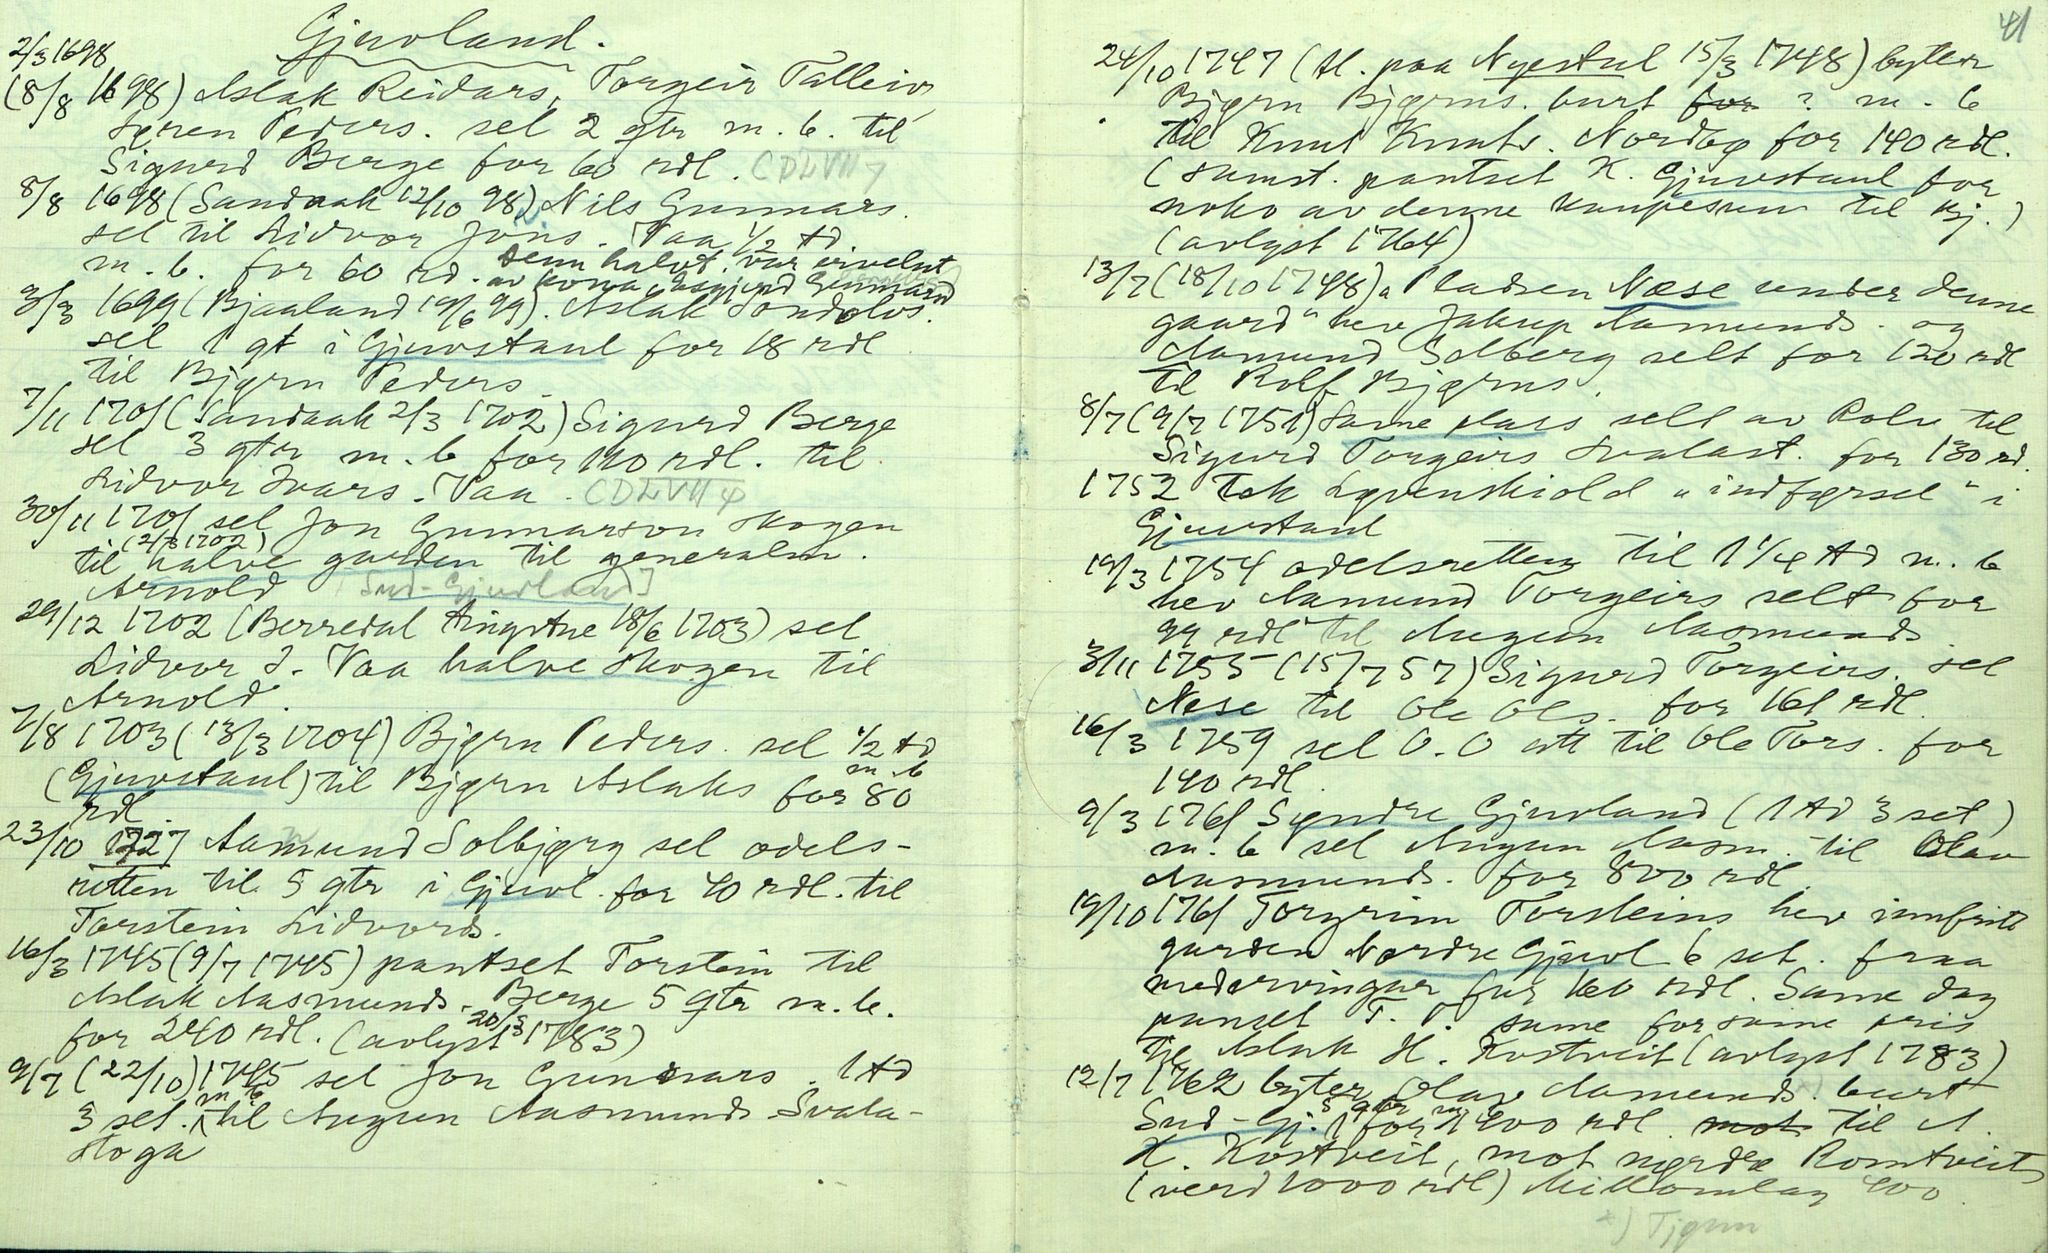 Gjuvland.
2/3 1698
(8/8 1698) Aslak Reidars, Torgeir Talleivs,
Søren Peders. sel 2 gtr m. b. til
Sigurd Berge for 60 rdl. CDLVII 7
8/8 1698 (Sandaak 12/10 98) Nils Gunnars.
sel til Lidvor Jons. Vaa 1/2 td
m. b. for 60 rd. Denn halvt. var
av kona Gunnars
3/3 1699 (Bjaaland 19/6 99). Aslak Tondolvs.
sel 1 gt i Gjuvstaul for 18 rdl
til Bjørn Peders
7/11 1701 (Sandaak 2/3 1702) Sigurd Berge
sel 3 gtr m. b for 110 rdl. til
Lidvor Ivars. Vaa. CDLVII φ
30/11 1701 sel Jon Gunnarson Skogen
(2/3 1702)
til halve garden til generalm.
Arnold [Sud-Gjuvland]
29/12 1702 (Berredal tingstue 18/6 1703) sel
Lidvor J. Vaa halve Skogen til
Arnold.
7/8 1703 (13/3 1704) Bjørn Peders. sel 1/2 td
m. b
(Gjuvstaul) til Bjørn Aslaks for 80
rdl.
23/10 1727 Aamund Solbjørg sel odels-
retten til 5 gtr i Gjuvl. for 40 rdl. til
Torstein Lidvords.
16/3 1745 (9/7 1745) pantset Torstein til
Aslak Aasmunds. Berge 5 gtr m. b.
for 240 rdl. (avlyst 20/3 1783)
9/7 (22/10) 1745 sel Jon Gunnars. 1 td
m b
3 set. til Augun Aasmunds Svala-
stoga
41
24/10 1747 (tl. paa Nyestul 15/3 1748) byter
Bjørn Bjørns. burt for ? m. b
til Knut Knuts. Nordbø for 140 rdl.
(Samst. pantset K. Gjuvstaul for
noko av denne kaupesum til Bj.)
(avlyst 1764)
13/7 (18/10 1748) "Pladsen Næse under denne
gaard" hev Jakup Aamunds. og
Aamund Solberg selt for 120 rdl
til Rolf Bjørns.
8/7 (9/7 1751) Same plass selt av Rolv til
Sigurd Torgeirs Svalast. for 130 rd.
1752 tok Løvenskiold "indførsel" i
Gjuvstaul
19/3 1754 odelsretten til 1 1/4 td m. b
hev Aamund Torgeirs selt for
99 rdl til Augun Aasmunds
3/11 1755 (15/7 57) Sigurd Torgeirs. sel
Nese til Ole Ols. for 161 rdl.
16/3 1759 sel O. O att til Ole Tors. for
140 rdl.
9/3 1761 Syndre Gjuvland (1 td 3 set)
m. b sel Augun Aasm. til Olav
Aasmunds. for 800 rdl.
19/10 1761 Torgrim Torsteins hev innfrit
garden Nørdre Gjuvl 6 set. fraa
medarvingar fur 160 rdl. Same dag
panset T. T. same for same pris
til Aslak H. Kostveit (avlyst 1783)
12/7 1762 byter Olav Aamunds. burt
5 gtr m b
Sud-Gj. for 1400 rdl. mot til A.
H. Kostveit, mot nørdre Romtveit
(verd 1000 rdl) Millomlag 400.
x) Tjønn